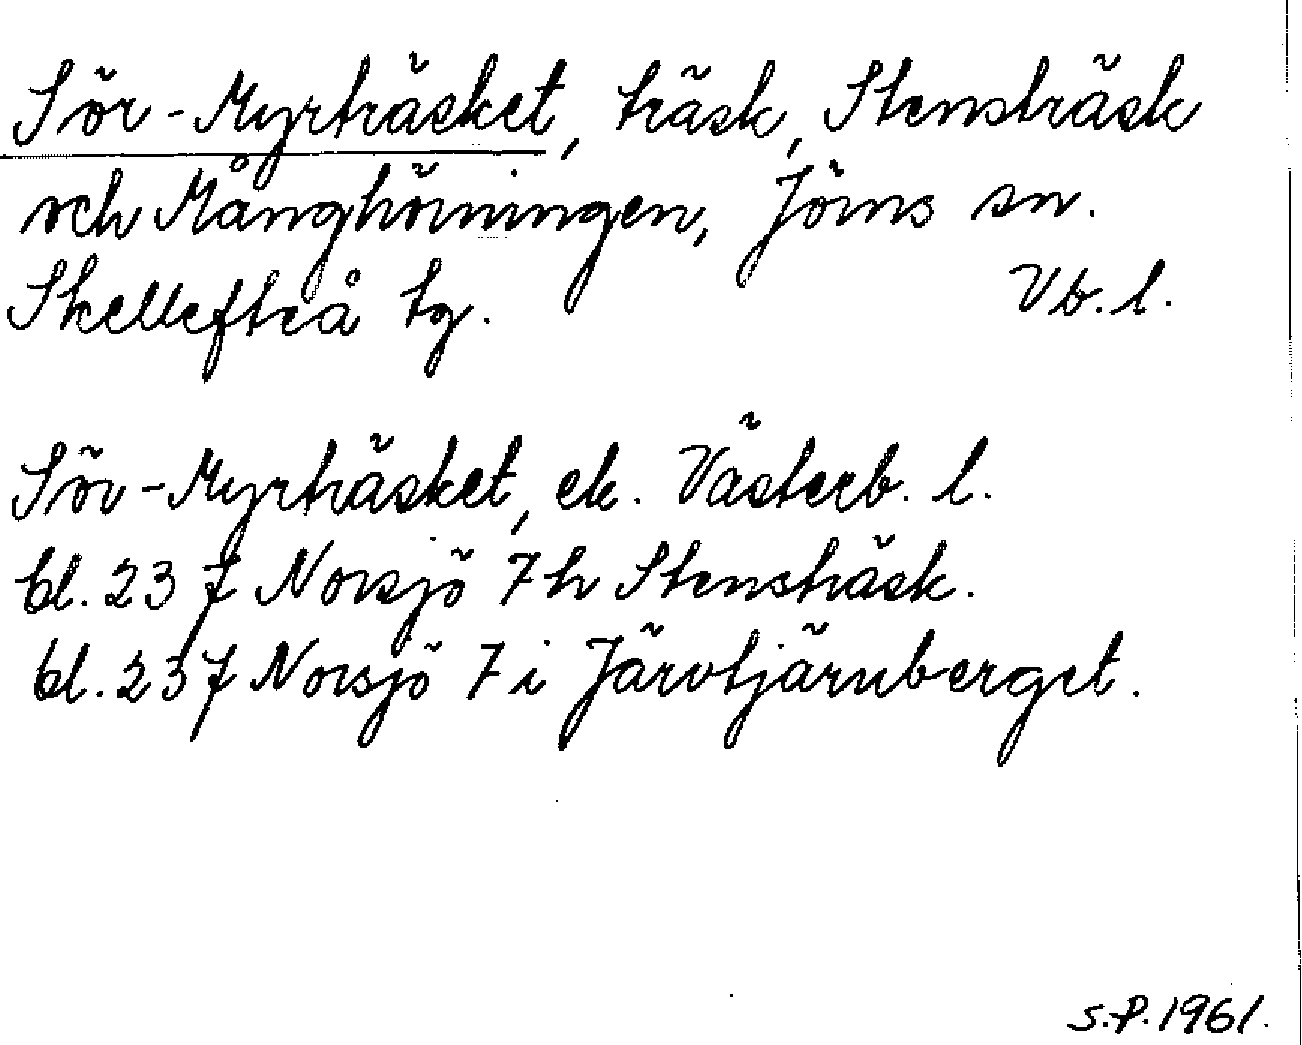 Sör-Myrträsket, träsk, Stensträsk
och Månghörningen, Jörns sn.
Skellefteå tg. Vb. l.
Sör-Myrträsket, ek. Västerb. l.
bl. 23 J Norsjö 7 h Stensträsk.
bl. 23 J Norsjö 7 i Järvtjärnberget.
S.P. 1961.